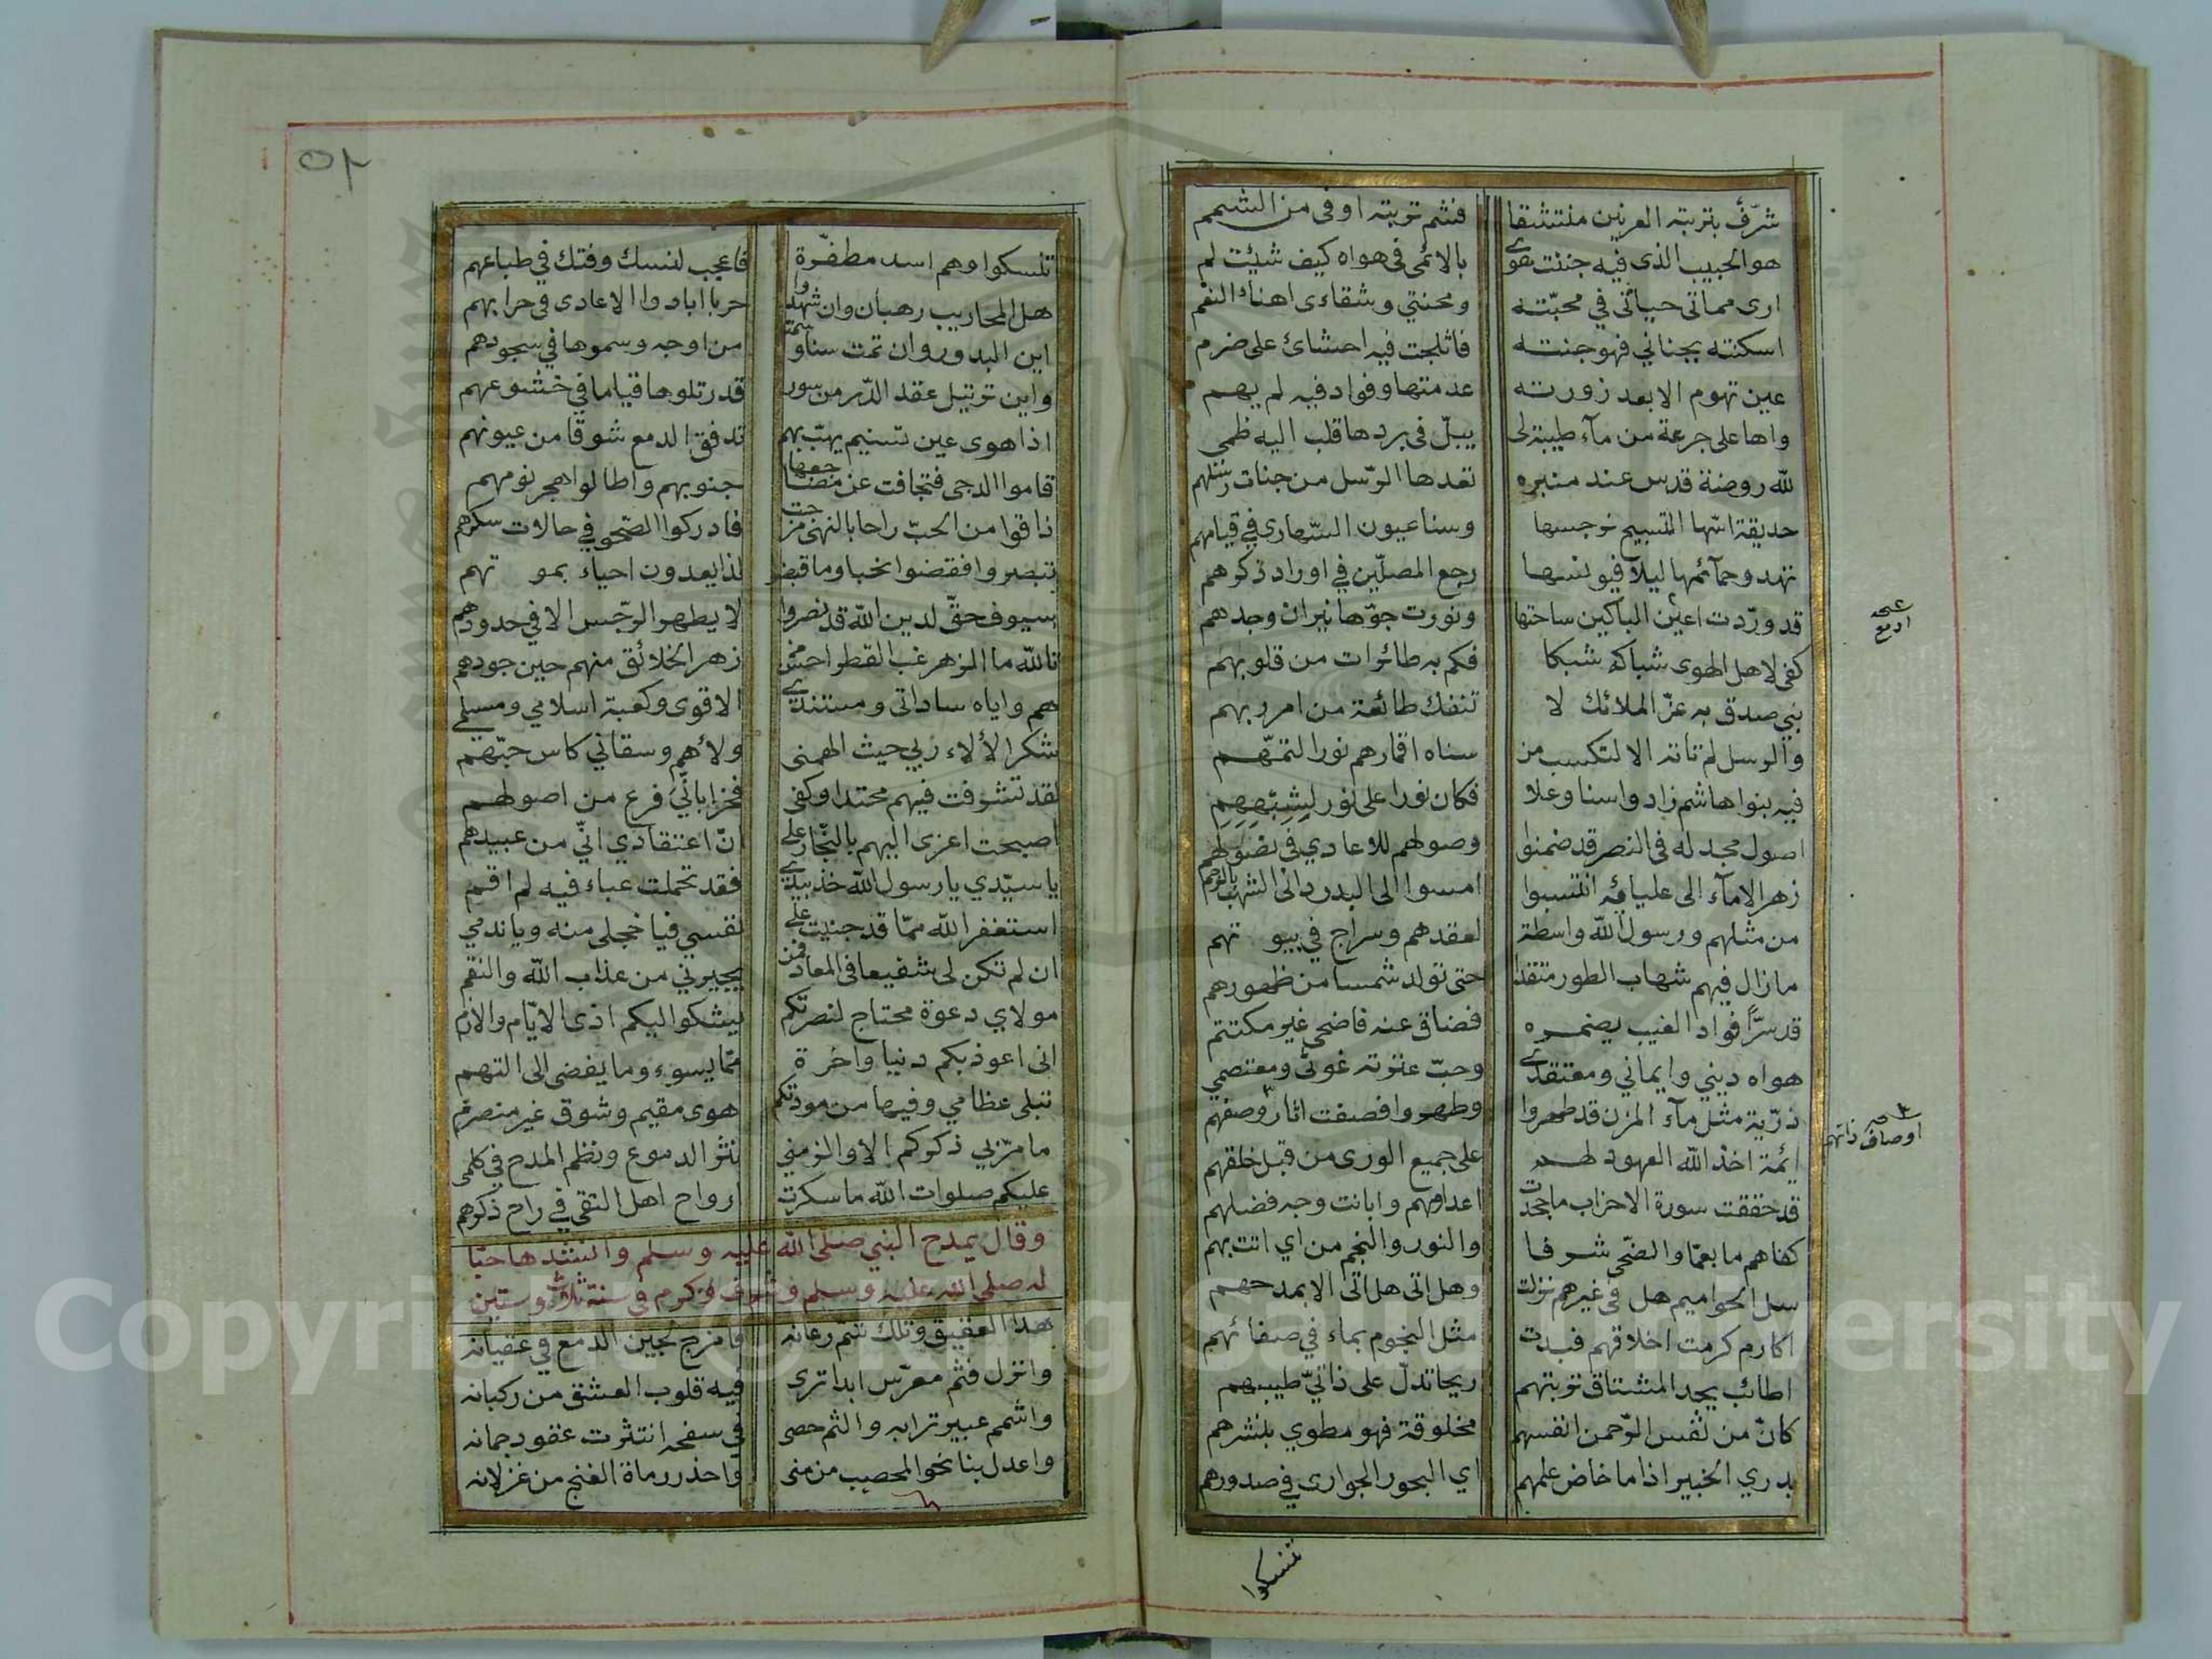 شرّف بتربته العرنين منتشقا فشم تربته اوفى من الشمم
هو الحبيب الذى فيه جننت هوى يالائمى فى هواه كيف شئت لم
ارى مماتى حياتى في محبّته ومحنتي وشقاءى اهناء النعم
اسكنته بجناني فهو جنته فاثلجت فيه احشائ على ضرم
عين تهوم الا بعد زورته عدمتها وفواد فيه لم يهم
واها على جرعة من مآء طيبة لى يبلّ فى بردها قلب اليه ظمى
لله روضة قدس عند منبره تعدها الرّسل من جنات
حديقة اسّها التسبيح نرجسها وسنا عيون السّهارى في قيامهم
تهدو حمآئمها ليلا فيونسها رجع المصلّين في اوراد ذكرهم
قد ورّدت اعين الباكين ساحتها ونورت جوّها نيران وجدهم
كفى لاهل الهوى شباكه شبكا فكم به طائرات من قلوبهم
بني صدق به غرّ الملائك لا تنفك طائفة من امر ربهم
والرسل لم تاته الا لتكسب من سناه اقمارهم نورا لتمّهم
فيه بنوا هاشم زاد واسنا وعلا فكان نورا على نور لشبههم
اصول مجد له فى النصر قد ضمنوا وصولهم للاعادي فى نصولهم
زهر الامآء الى عليائه انتسبوا امسوا الى البدر دانى الشهب بالرجم
من مثلهم ورسول الله واسطة لعقدهم وسراج في بيو تهم
مازال فيهم شهاب الطور متقدا حتى تولد شمسا من ظهورهم
قد سرّا فواد الغيب يضمره فضاق عنه فاضحى غير مكتتم
هواه ديني وايماني ومعتقدى وحبّ عترته غوثى ومعتصمي
ذرّية مثل مآء المزن قد طهروا وطهروا فصفت اثار وصفهم
ائمة اخذ الله العهود لهم على جميع الورى من قبل خلقهم
قد حققت سورة الاحزاب ما جحدت اعداوهم وابانت وجه فضلهم
كفاهم ما بعمّا والضّحى شرفا والنور والنجم من اي اتت بهم
سل الحواميم هل في غيرهم نزلت وهل اتى هل اتى الا بمدحهم
اكارم كرمت اخلاقهم فبدت مثل النجوم بماء في صفائهم
اطائب يجد المشتاق تربتهم ريحا تدلّ على ذاتيّ طيبهم
كانّ من نفس الرّحمن انفسهم مخلوقة فهو مطوي بنشرهم
يدري الخبير اذا ما خاض علمهم اي البحور الجوارى في صدورهم
تنسكوا
صح
ادمع
صح
اوصاف ذاتهم
٥٢
تنسكوا وهم اسد مظفّرة فاعجب لنسك وفتك في طباعهم
هل المحاريب رهبان وان شهدوا حربا ابادوا الاعادى فى حرابهم
اين البدور وان تمت سنا وسمت من اوجه وسموها في سجودهم
واين ترتيل عقد الدّر من سور قد رتلوها قياما في خشوعهم
اذا هوى عين تسنيم يهبّ بهم تدفق الدمع شوقا من عيونهم
قاموا الدجى فتجافت عن مضاجعها جنوبهم واطالوا هجر نومهم
ذاقوا من الحبّ راحا بالنهى مزجت فادركوا الصّحو في حالات سكرهم
تبصروا فقضوا نحبا وما قبضوا لذا يعدون احياء بمو تهم
سيوف حقّ لدين الله قد نصروا لا يطهر الرّجس الا في حدودهم
تالله ما الزهر غب القطر احسن من زهر الخلائق منهم حين جودهم
هم واياه ساداتى ومستندى الاقوى وكعبة اسلامي ومستلمي
شكرا لألاء ربي حيث الهمنى ولاهم وسقاني كاس حبّهم
لقد تشرفت فيهم محتدا وكفى فخرا بانّي فرع من اصولهم
اصبحت اعزى اليهم بالنّجار على انّ اعتقادي انّي من عبيدهم
يا سيّدي يا رسول الله خذ بيدى فقد تحملت عباء فيه لم اقم
استغفر الله ممّا قد جنيت على نفسي فيا خجلى منه ويا ندمي
ان لم تكن لى شفيعا فى المعاد فمن يجيرني من عذاب الله والنقم
مولاي دعوة محتاج لنصرتكم يشكوا اليكم اذى الايّام والازم
انى اعوذ بكم دنيا واخرة ممّا يسوء وما يفضى الى التهم
تبلى عظامي وفيها من مودتكم هوى مقيم وشوق غير منصرم
ما مرّ بي ذكركم الا والزمني نثر الدموع ونظم المدح في كلمى
عليكم صلوات الله ما سكرت ارواح اهل التقى في راح ذكرهم
وقال يمدح النبي صلى الله عليه وسلم وانشدها حبّا
له صلى الله عليه وسلم وشرف وكرم في سنة ثلاث وستين
هذا العقيق وتلك شمّ رعانه فامزج لجين الدمع في عقيانه
وانزل فثم معرّس ابدا ترى فيه قلوب العشق من ركبانه
واشمم عبير ترابه والثم حصى في سفحه انتثرت عقود جمانه
واعدل بنا نحو المحصب من منى واحذر رماة الغنج من غزلانه
Copyright © King Saud University